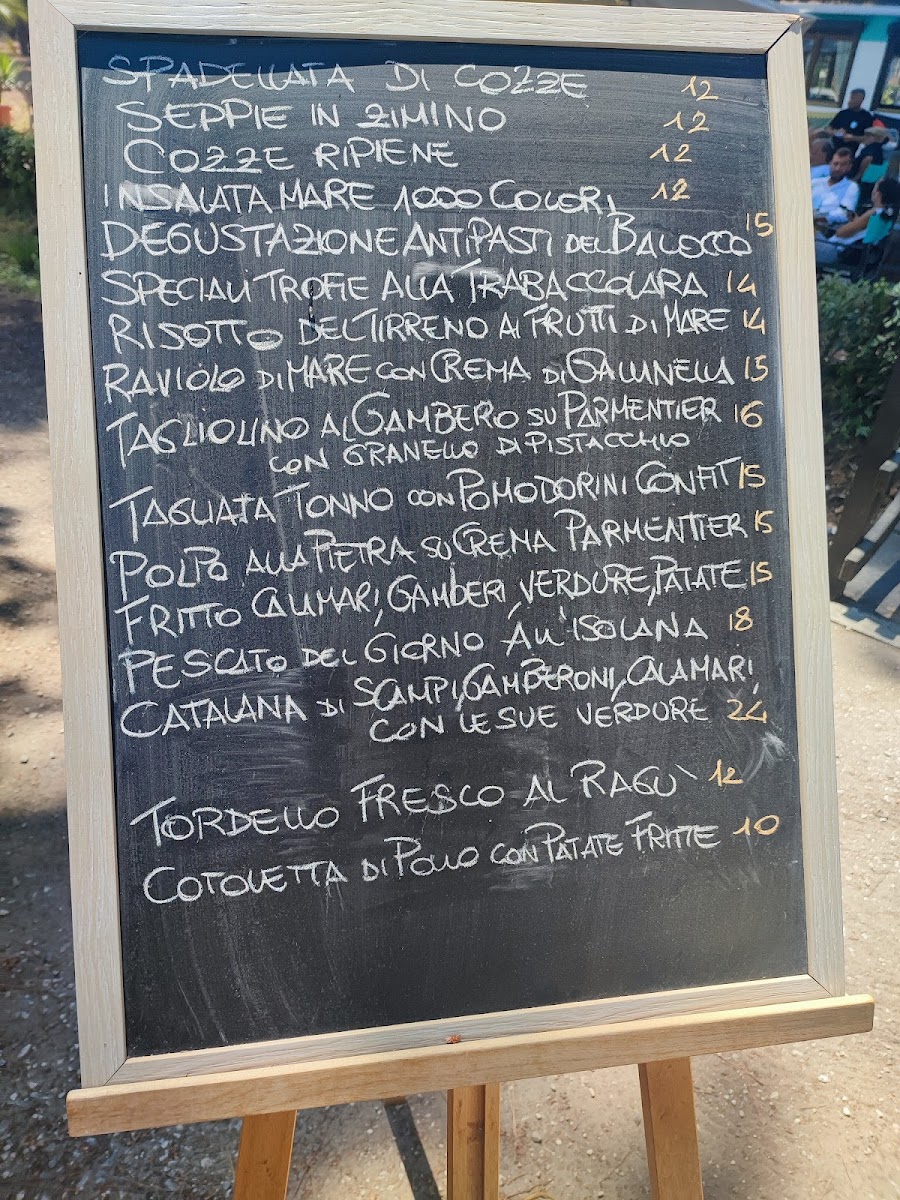 SPADELLATA DI COZZE 12
SEPPIE IN ZIMINO 12
COZZE RIPIENE 12
INSALATA MARE 1000 COLORI 12
DEGUSTAZIONE ANTIPASTI DEL BALOCCO 15
SPECIALI TROFIE ALLA TRABACCOLARA 14
RISOTTO DEL TIRRENO AI FRUTTI DI MARE 14
RAVIOLO DI MARE CON CREMA DI GALLINELLA 15
TAGLIOLINO AL GAMBERO SU PARMENTIER 16
CON GRANELLO DI PISTACCHIO
TAGLIATA TONNO CON POMODORINI CONFIT 15
POLPO ALLA PIETRA SU CREMA PARMENTIER 15
FRITTO CALAMARI, GAMBERI, VERDURE, PATATE 15
PESCATO DEL GIORNO ALL'ISOLANA 18
CATALANA DI SCAMPI, GAMBERONI, CALAMARI,
CON LE SUE VERDURE 24
TORDELLO FRESCO AL RAGU' 12
COTOLETTA DI POLLO CON PATATE FRITTE 10